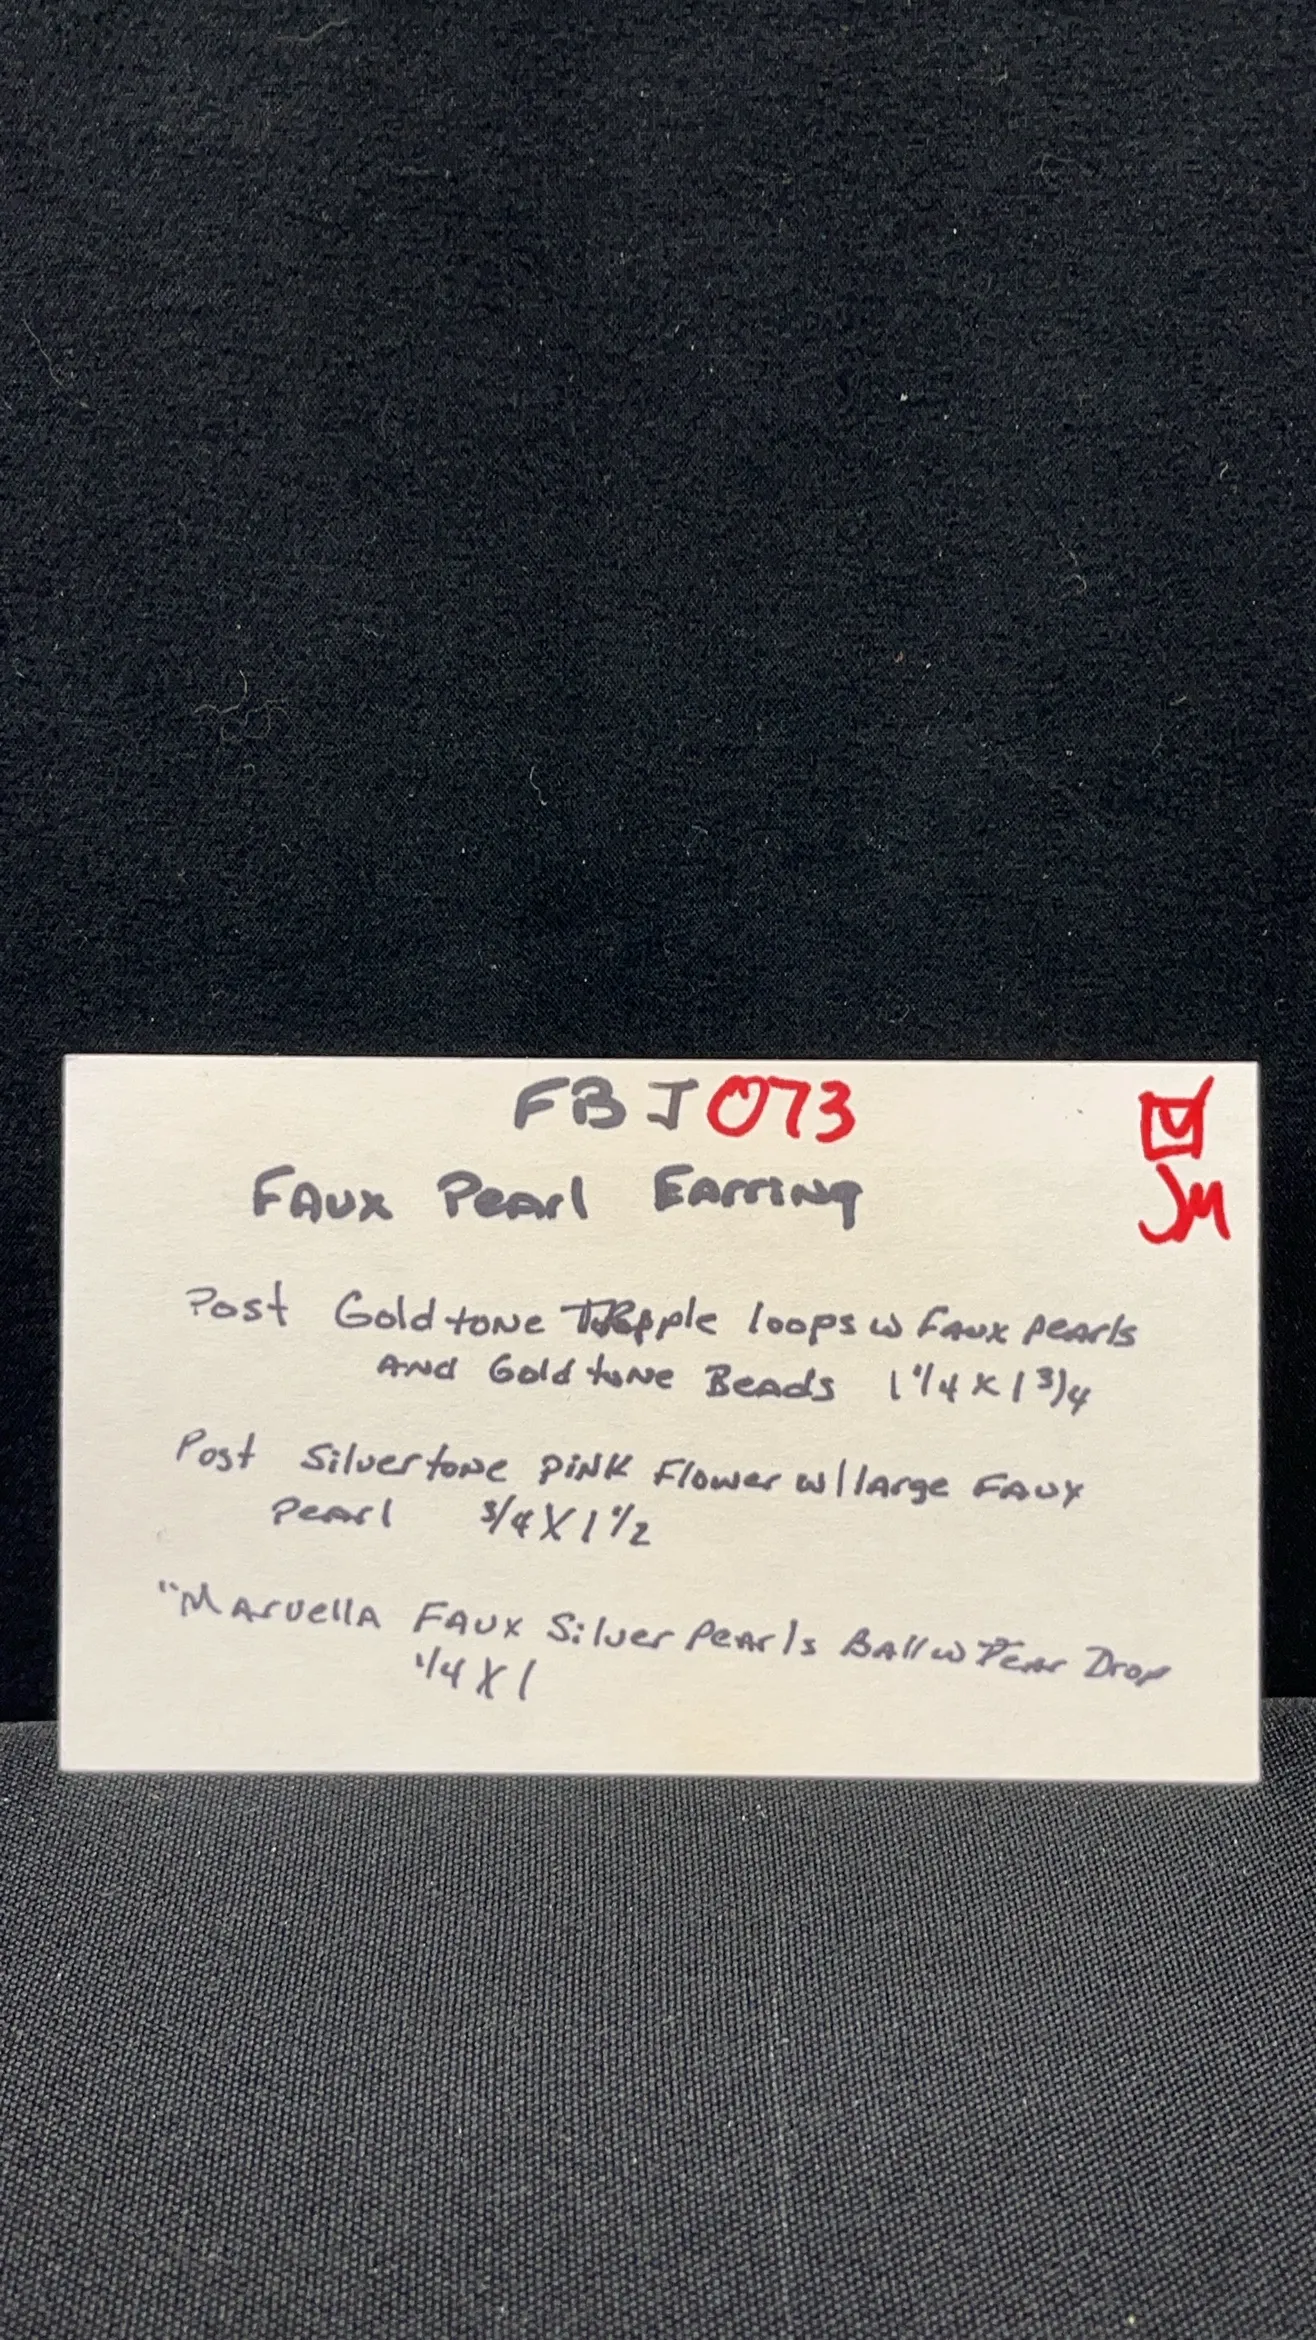 FBJ073
Faux Pearl Earring
JM
Post Goldtone Tripple loops w Faux pearls
and Goldtone Beads 1 1/4 x 1 3/4
Post Silvertone Pink Flower w/large Faux
Pearl 3/4 X 1 1/2
"Marvella Faux Silver Pearls Ball w Tear Drop
1/4 X 1